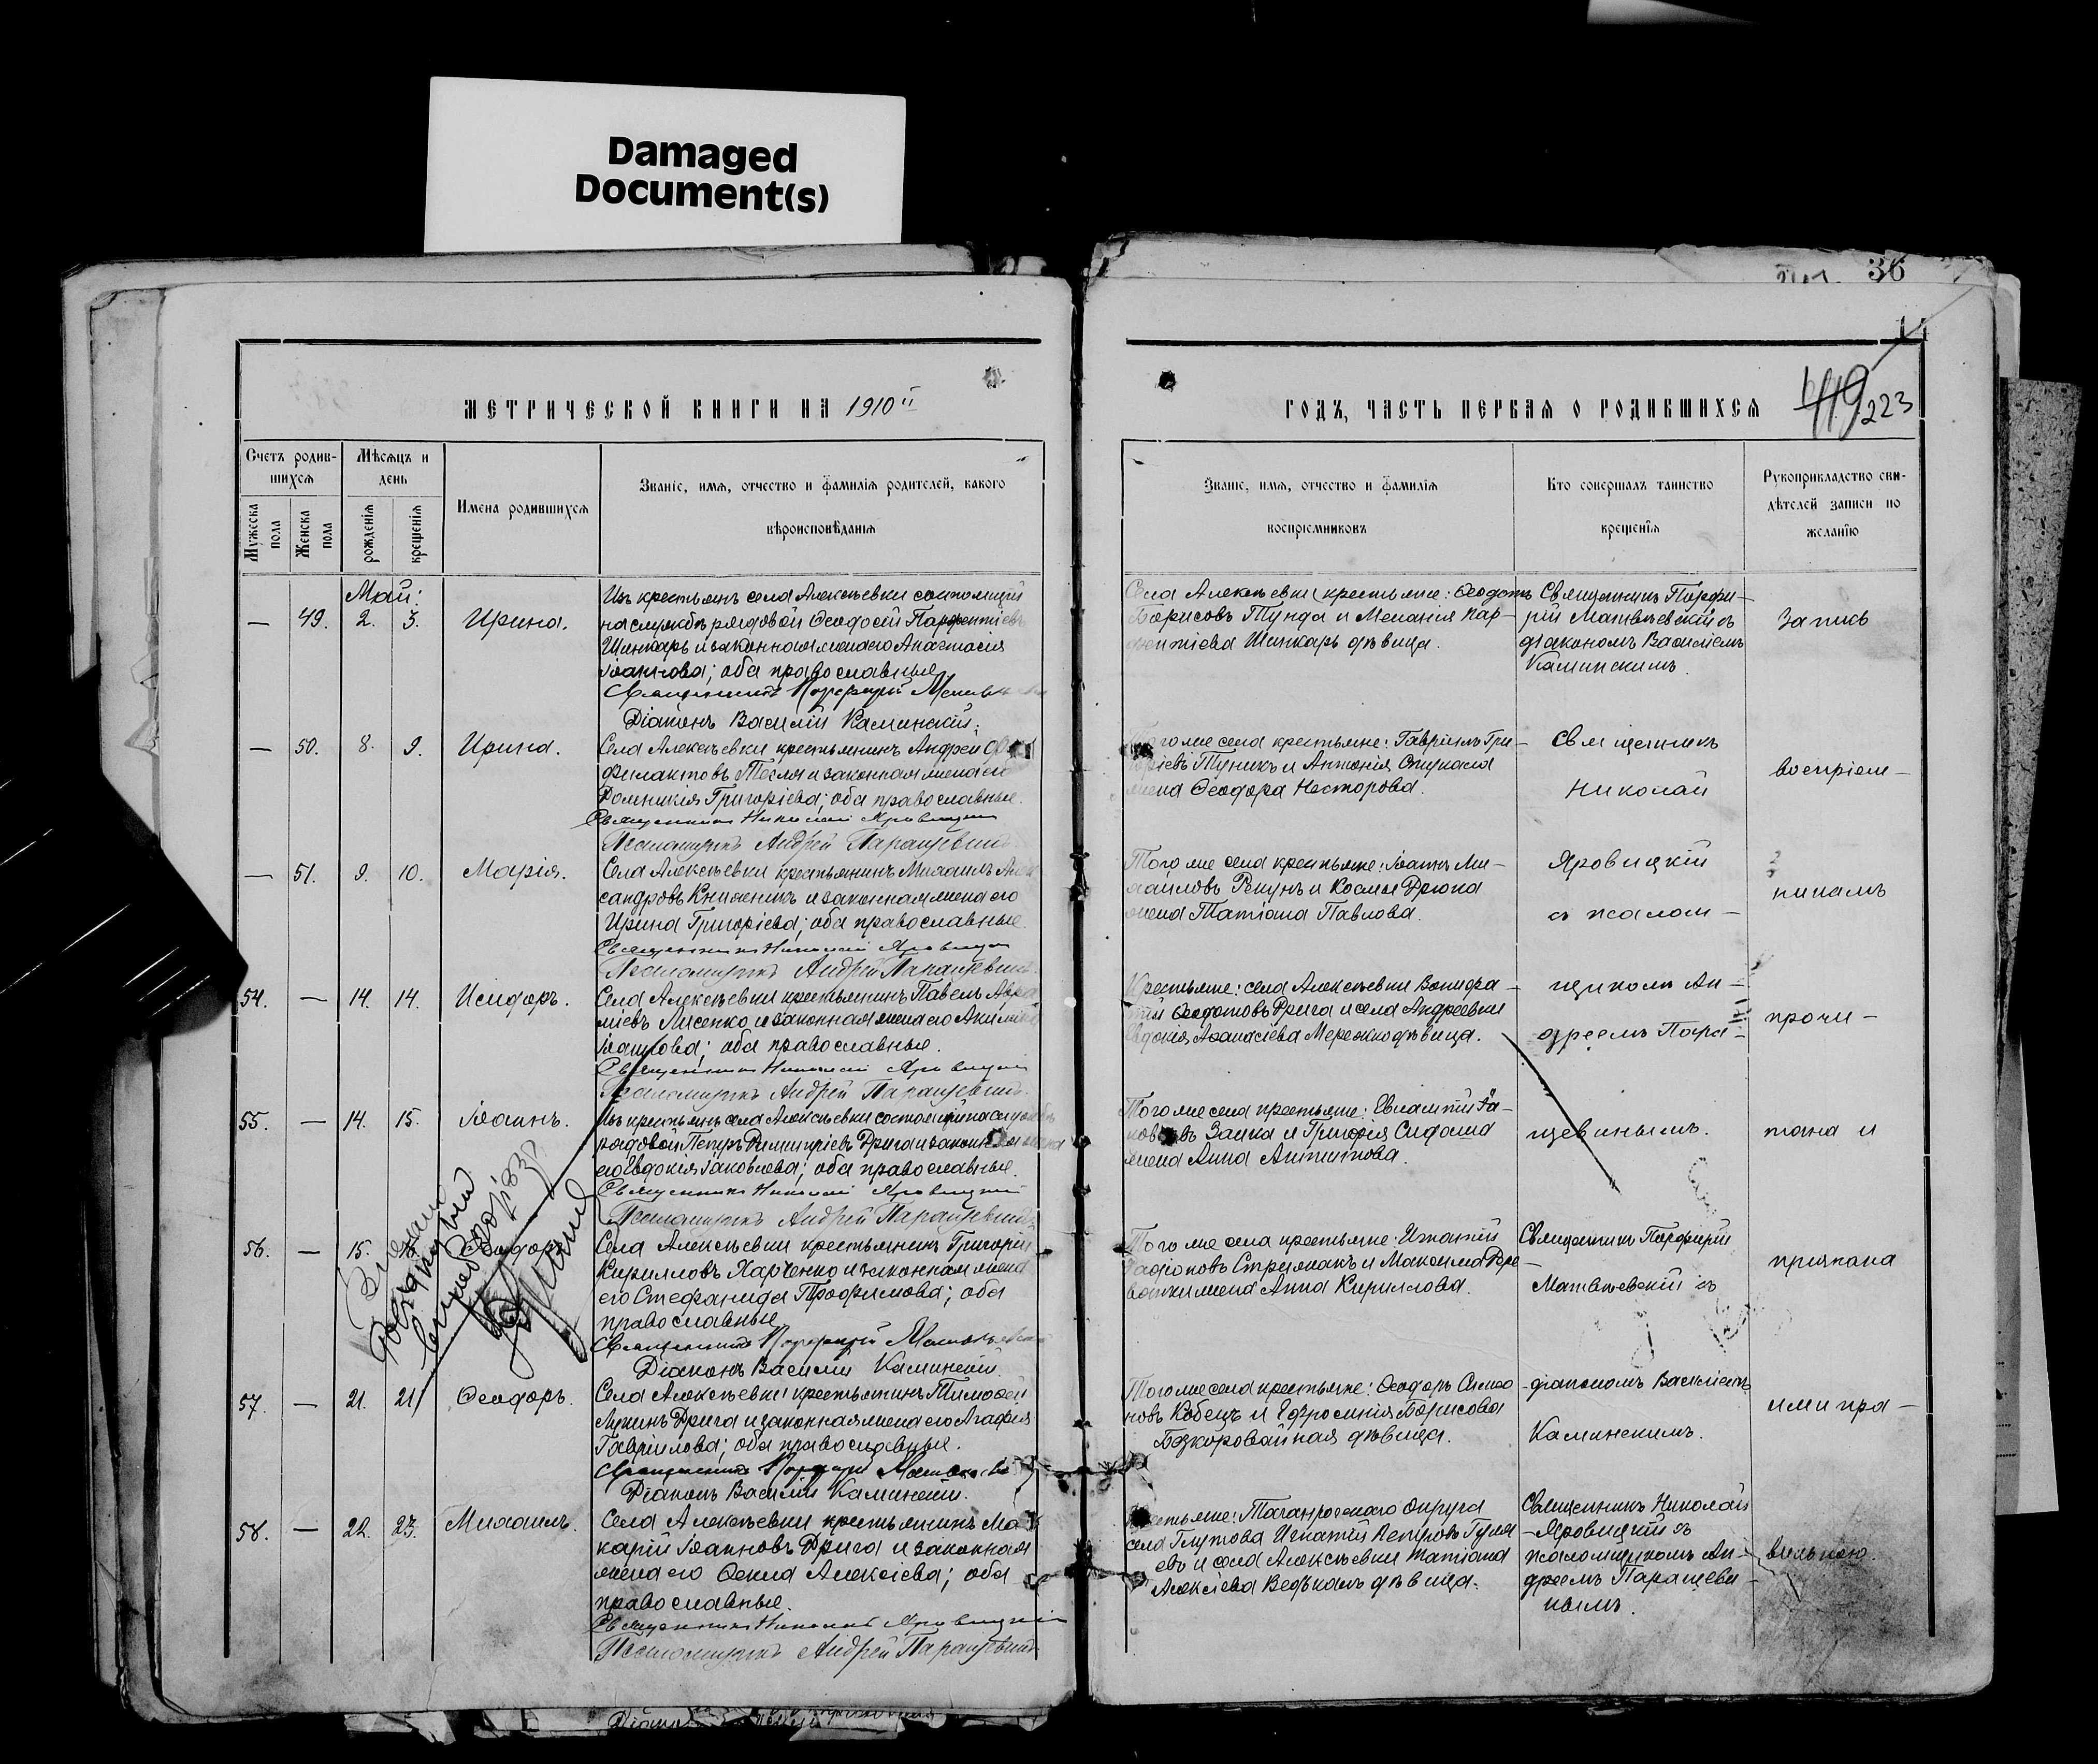 Damaged
Document(s)
36
14
МЕТРИЧЕСКОЙ КНИГИ НА 1910й
ГОДЪ, ЧАСТЬ ПЕРВАЯ О РОДИВШИХСЯ
449 223
Счетъ родив-
шихся
Мужеска пола
Женска пола
Мѣсяцъ и
день
рожденія
крещенія
Имена родившихся
Званіе, имя, отчество и фамилія родителей, какого
вѣроисповѣданія
Званіе, имя, отчество и фамилія
воспріемниковъ
Кто совершалъ таинство
крещенія
Рукоприкладство сви-
дѣтелей записи по
желанію
Май:
— 49. 2. 3. Ирина.
Изъ крестьянъ села Алексѣевки состоящій
на службѣ рядовой Ѳеодосій Парфентіевъ
Шинкарь и законная жена его Анастасія
Іоаннова; оба православные.
Священникъ Порфирій
Діаконъ Василій Каминскій.
Села Алексѣевки крестьяне: Ѳеодотъ
Борисовъ Тунда и Меланія Пар-
фентіева Шинкарь дѣвица.
Священникъ Порфи-
рій Матвѣевскій съ
діакономъ Василіемъ
Каминскимъ.
Запись
— 50. 8. 9. Ирина.
Села Алексѣевки крестьянинъ Андрей
Филактовъ Тесля и законная жена его
Домникія Григоріева; оба православные.
Священникъ Николай Яровицкій
Псаломщикъ Андрей Паращевинъ
Того же села крестьяне: Гавріилъ Гри-
горіевъ Туникъ и Антонія
жена Ѳеодора Несторова.
Священникъ
Николай
воспріем-
— 51. 9. 10. Марія.
Села Алексѣевки крестьянинъ Михаилъ Алек
сандровъ Книженикъ и законная жена его
Ирина Григоріева; оба православные.
Священникъ Николай Яровицкій
Псаломщикъ Андрей Паращевинъ.
Того же села крестьяне: Іоаннъ Ми-
хайловъ Репунъ и Космы Дрюка
жена Татіана Павлова.
Яровицкій
съ псалом-
никамъ
54. — 14. 14. Исидоръ.
Села Алексѣевки крестьянинъ Павелъ Авра
міевъ Лисенко и законная жена его
Іоаннова; оба православные.
Священникъ Николай Яровицкій
Псаломщикъ Андрей Паращевинъ.
Крестьяне: села Алексѣевки Вонифа-
тій Ѳеодотовъ Дрига и села Андреевки
Евдокія Аѳанасіева Мережко дѣвица.
щикомъ Ан-
дреемъ Пара-
прочи-
55. — 14. 15. Іоаннъ.
Изъ крестьянъ села Алексѣевки состоящій на службѣ
рядовой Петръ Димитріевъ Дрига и законная жена
его Евдокія Іаковлева; оба православные.
Священникъ Николай Яровицкій
Псаломщикъ Андрей Паращевинъ.
Того же села крестьяне: Евлампій Іа-
ковлевъ Заика и Григорія Сидаша
жена Анна Антипова.
щевинымъ.
тана и
56. — 15.
Села Алексѣевки крестьянинъ Григорій
Кирилловъ Харченко и законная жена
его Стефанида Трофимова; оба
православные
Священникъ Порфирій
Діаконъ Василій Каминскій.
Того же села крестьяне: Игнатій
Радіоновъ Стрижакъ и Максима Дере-
вянки жена Анна Кириллова.
Священникъ Порфирій
Матвѣевскій съ
признана
57. — 21. 21 Ѳеодоръ.
Села Алексѣевки крестьянинъ Тимоѳей
Лукинъ Дрига и законная жена его Агафія
Гавріилова; оба православные.
Священникъ Порфирій
Діаконъ Василій Каминскій.
Того же села крестьяне: Ѳеодоръ Симео
новъ Кобецъ и Евфросинія Борисова
Безкоровайная дѣвица.
-діакономъ Василіемъ
Каминскимъ.
ими пра-
58. — 22. 23. Михаилъ.
Села Алексѣевки крестьянинъ Ма
карій Іоанновъ Дрига и законная
жена его Ѳекла Алексіева; оба
православные.
Священникъ Николай Яровицкій
Псаломщикъ Андрей Паращевинъ
Крестьяне: Таганрогскаго Округа
села Глутова Игнатій Петровъ Гуля
евъ и села Алексѣевки Татіана
Алексіева Ведькаль дѣвица.
Священникъ Николай
Яровицкій съ
псаломщикомъ Ан-
дреемъ Паращеви-
нымъ.
вильною.